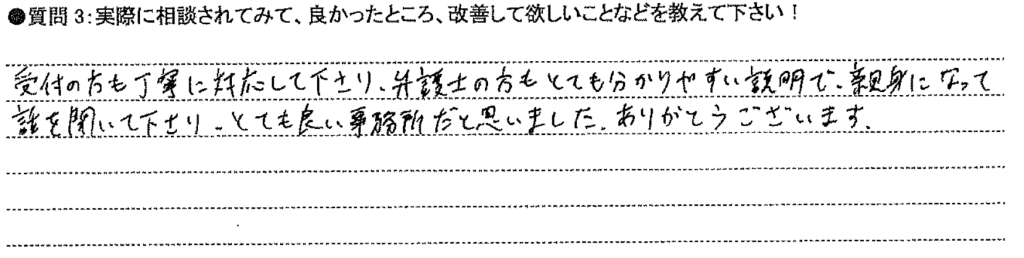 ●質問3：実際に相談されてみて、良かったところ、改善して欲しいことなどを教えて下さい！
受付の方も丁寧に対応して下さり、弁護士の方もとても分かりやすい説明で、親身になって
話を聞いて下さり、とても良い事務所だと思いました。ありがとうございます。